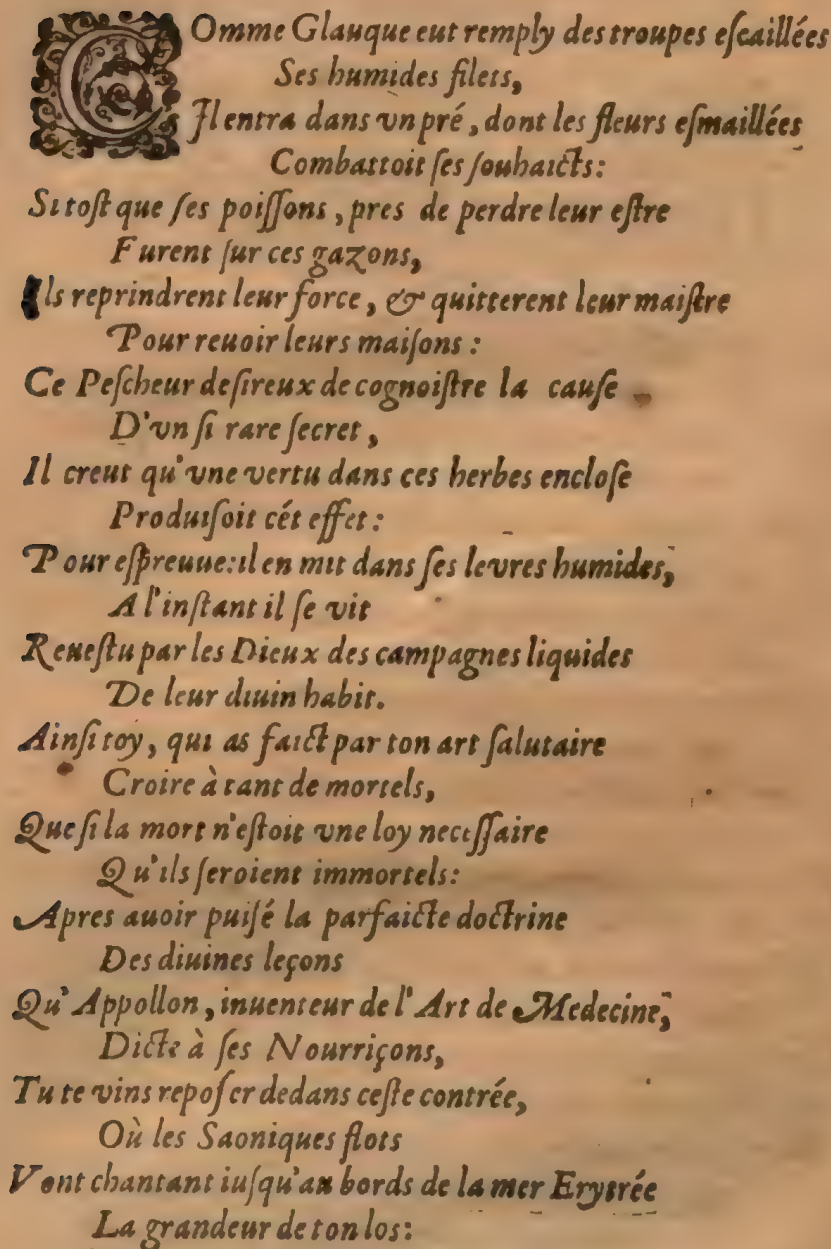 COmme Glauque eut remply des troupes eſcaillées
Ses humides filets,
Il entra dans vn pré, dont les fleurs eſmaillées
Combattoit ſes ſouhaicts:
Si toſt que ſes poiſſons, pres de perdre leur eſtre
Furent ſur ces gazons,
Ils reprindrent leur force, & quitterent leur maiſtre
Pour reuoir leurs maiſons:
Ce Peſcheur deſireux de cognoiſtre la cauſe
D'vn ſi rare ſecret,
Il creut qu'vne vertu dans ces herbes encloſe
Produiſoit cét effet:
Pour eſpreuue: il en mit dans ſes levres humides,
A l'inſtant il ſe vit
Reueſtu par les Dieux des campagnes liquides
De leur diuin habit.
Ainſi toy, qui as faict par ton art ſalutaire
Croire à tant de mortels,
Que ſi la mort n'eſtoit vne loy neceſſaire
Qu'ils ſeroient immortels:
Apres auoir puiſé la parfaicte doctrine
Des diuines leçons
Qu'Appollon, inuenteur de l'Art de Medecine,
Dicte à ſes Nourriçons,
Tu te vins repoſer dedans ceſte contrée,
Où les Saoniques flots
Vont chantant iuſqu'au bords de la mer Erytrée
La grandeur de ton los: